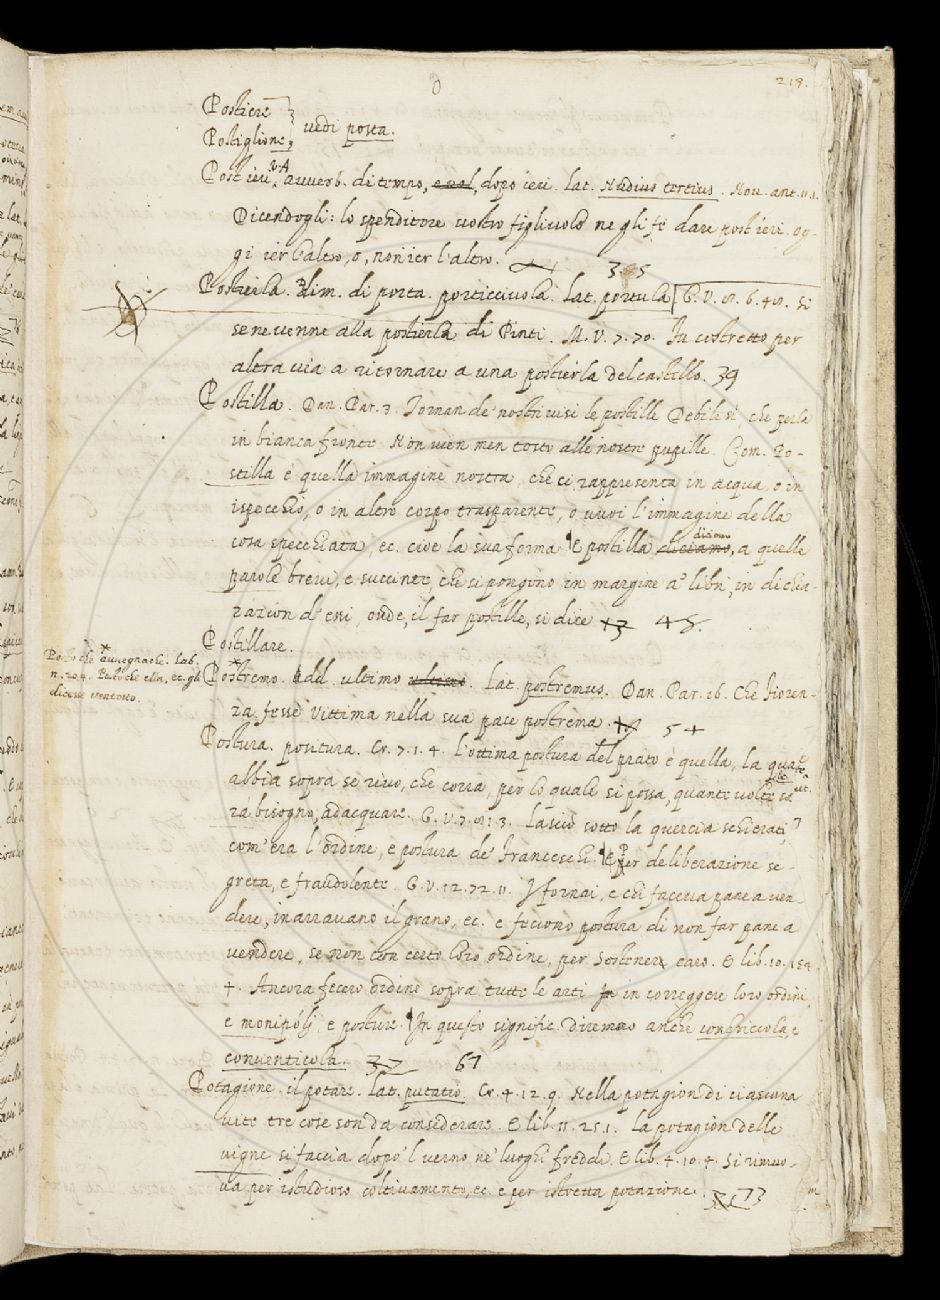 218.
Postiere
Postiglione } vedi posta.
Post ieri, V.A. avverb. di tempo, dopo ieri. lat. Nudius tertius. Nov. ant. 11.1.
Dicendogli: lo spenditore vostro figliuolo ne gli fè dare post ieri. og-
gi ier l'altro, o, non ier l'altro. 305
Postierla. Dim. di porta. porticciuola. lat. portula [G. V. 8. 6. 48. Si
se ne venne alla postierla di Pinti. M. V. 7. 70. Fu costretto per
altra via a ritornare a una postierla del castello. 39
Postilla. Dan. Par. 3. Tornan de nostri visi le postille Debile sì, che perla
in bianca fronte Non vien men tosto alle nostre pupille. Com. Po-
stilla è quella immagine nostra, che ci rappresenta in acqua, o in
ispecchio, o in altro corpo trasparente, o vuoi l'immagine della
cosa specchiata, ec. cioè la sua forma E postilla diciamo diciamo, a quelle
parole brievi, e succinte, che si pongono in margine a' libri, in dichia-
razion d'essi, onde, il far postille, si dice 48.
Postillare.
Posto che * avvegnachè. Lab.
n. 204. Posto che ella, ec. gli
dicesse
Postremo. * Add. ultimo ultimo. Lat. postremus. Dan. Par. 16. Che Fioren-
za fesse Vittima nella sua pace postrema. 54
Postura. positura. Cr. 7. 1. 4. L'ottima postura del prato è quella, la quale
abbia sopra sè rivo, che corra, per lo quale si possa, quante volte sa-
rà bisogno, adacquare. G. V. 7. 81. 3. Lasciò sotto la quercia schierati
com'era l'ordine, e postura de' Franceschi. E per deliberazione se-
greta, e fraudolente. G. V. 12. 72. 11. I fornai, e chi faceva pane a ven-
dere, inarravano il grano, ec. e feciono postura di non far pane a
vendere, se non con certo loro ordine, per sostenere caro. E lib. 10. 154.
4. Ancora fecero ordine sopra tutte le arti in correggere loro ordini,
e monipoli e posture. In questo signific. diremmo anche conbriccola, e
conventicola. 37 61
Potagione. il potare. Lat. putatio. Cr. 4. 12. 9. Nella potagion di ciascuna
vite tre cose son da considerare. E lib. 11. 25. 1. La potagion delle
vigne si faccia dopo 'l verno ne' luoghi freddi. E lib. 4. 10. 4. Si rinuo-
va per istudioso coltivamento, ec. e per istretta potazione. 73